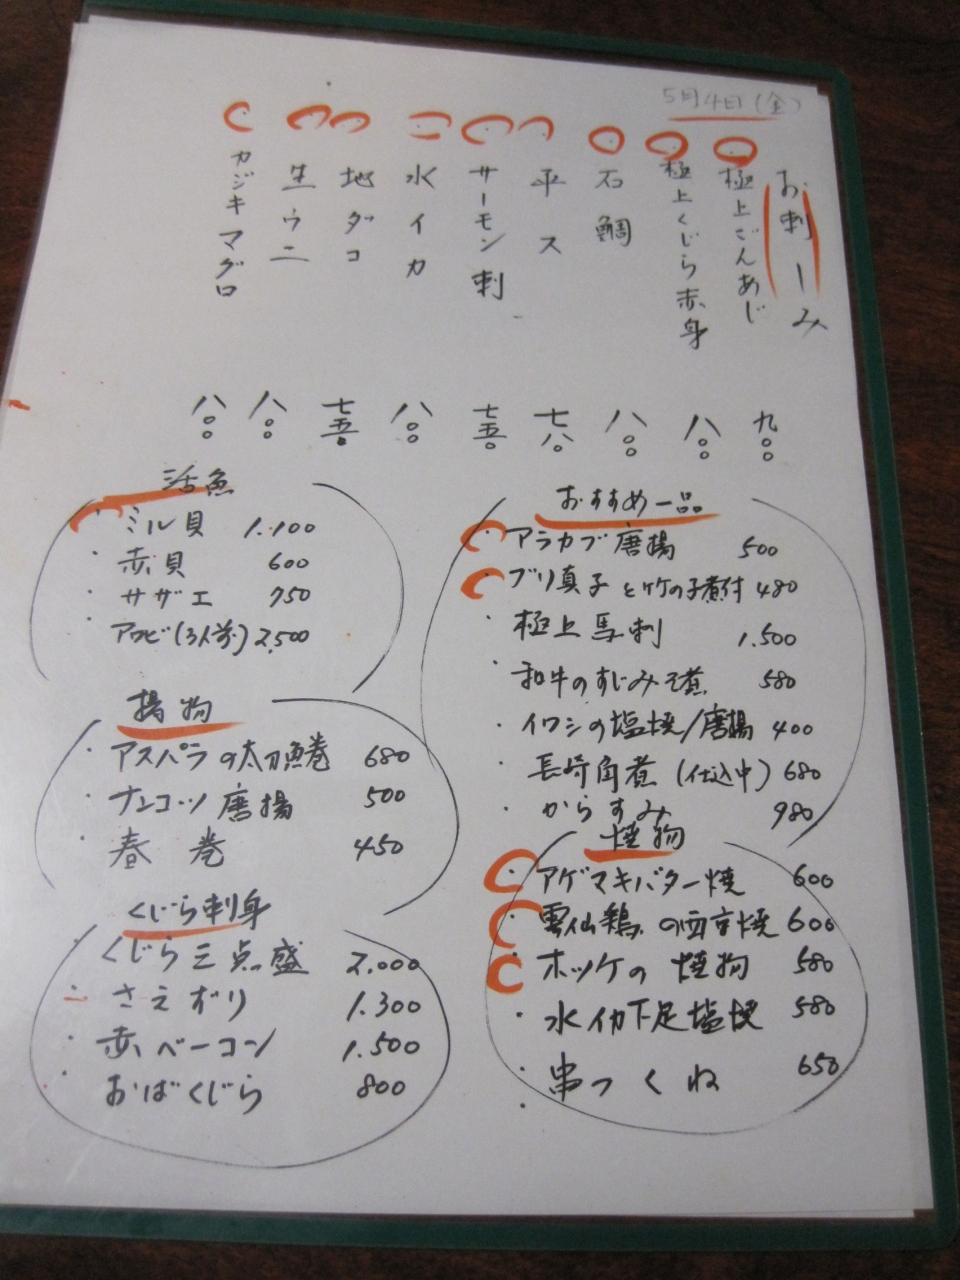 5月4日(金)
お刺しみ
極上ごんあじ 九〇〇
極上くじら赤身 八〇〇
石鯛 八〇〇
平ス 七八〇
サーモン刺 七五〇
水イカ 八〇〇
地ダコ 七五〇
生ウニ 八〇〇
カジキマグロ 八〇〇
おすすめ一品
・アラカブ唐揚 500
・ブリ真子と竹の子煮付 480
・極上馬刺 1.500
・和牛のすじみそ煮 580
・イワシの塩焼/唐揚 400
・長崎角煮(仕込中) 680
・からすみ 980
焼物
・アゲマキバター焼 600
・雲仙鶏の西京焼 600
・ホッケの焼物 580
・水イカ下足塩焼 580
・串つくね 650
活魚
・ミル貝 1.100
・赤貝 600
・サザエ 750
・アワビ(3人前) 2,500
揚物
・アスパラの太刀魚巻 680
・ナンコツ唐揚 500
・春巻 450
くじら刺身
・くじら三点盛 2.000
・さえずり 1.300
・赤ベーコン 1.500
・おばくじら 800